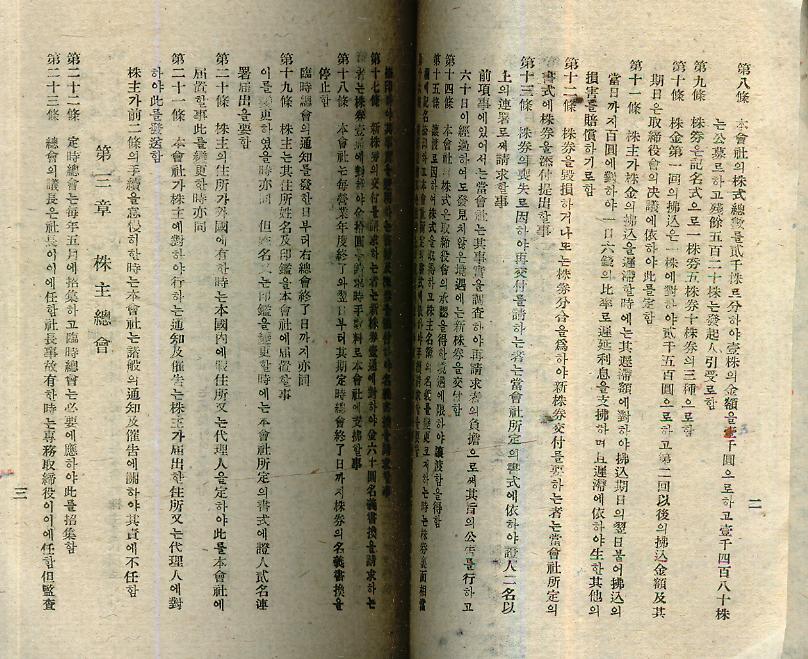 二
第八條 本會社의株式總數를貳千株로分하야壹株의金額을壹千圓으로하고壹千四百八十株
는公募로하고殘餘五百二十株는發起人引受로함
第九條 株券은記名式으로一株券五株券十株券의三種으로함
第十條 株金第一回의拂込은一株에對하야貳千五百圓으로하고第二回以後의拂込金額及其
期日은取締役會의決議에依하야此를定함
第十一條 株主가株金의拂込을遲滯할時에는其遲滯額에對하야拂込期日의翌日붙어拂込의
當日까지百圓에對하야一日六錢의比率로遲延利息을支拂하며且遲滯에依하야生한其他의
損害를賠償하기로함
第十二條 株券을毀損하거나又는株券分合을爲하야新株券交付를要하는者는當會社所定의
書式에株券을添付提出할事
第十三條 株券의喪失로因하야再交付를請하는者는當會社所定의書式에依하야證人二名以
上의連署로써請求할事
前項事에있어서는當會社는其事實을調査하야再請求者의負擔으로써其旨의公告를行하고
六十日이經過하여도發見치않은境遇에는新株券을交付함
第十四條 本會社의株式은取締役會의承認을得한境遇에限하야讓渡함을得함
第十五條
第十七條 新株券의交付를請求하는者는新株券壹通에對하야金六十圓名義書換을請求하는
者는株券壹通에對하야金拾圓을請求時手數料로本會社에支拂할事
第十八條 本會社는每營業年度終了의翌日부터其期定時總會終了日까지株券의名義書換을
停止함
臨時總會의通知를發한日부터右總會終了日까지亦同
第十九條 株主는其住所姓名及印鑑을本會社에屆置할事
이를變更하였을時亦同 但姓名又는印鑑을變更한時에는本會社所定의書式에證人貳名連
署屆出을要함
第二十條 株主의住所가外國에有한時는本國內에假住所又는代理人을定하야此를本會社에
屆置할事此를變更한時亦同
第二十一條 本會社가株主에對하야行하는通知及催告는株主가屆出한住所又는代理人에對
하야此를發送함
株主가前二條의手續을怠慢히한時는本會社는諸般의通知及催告에關하야其責에不任함
第三章 株主總會
第二十二條 定時總會는每年五月에招集하고臨時總會는必要에應하야此를招集함
第二十三條 總會의議長은社長이이에任함社長事故有한時는專務取締役이이에任함但監査
三